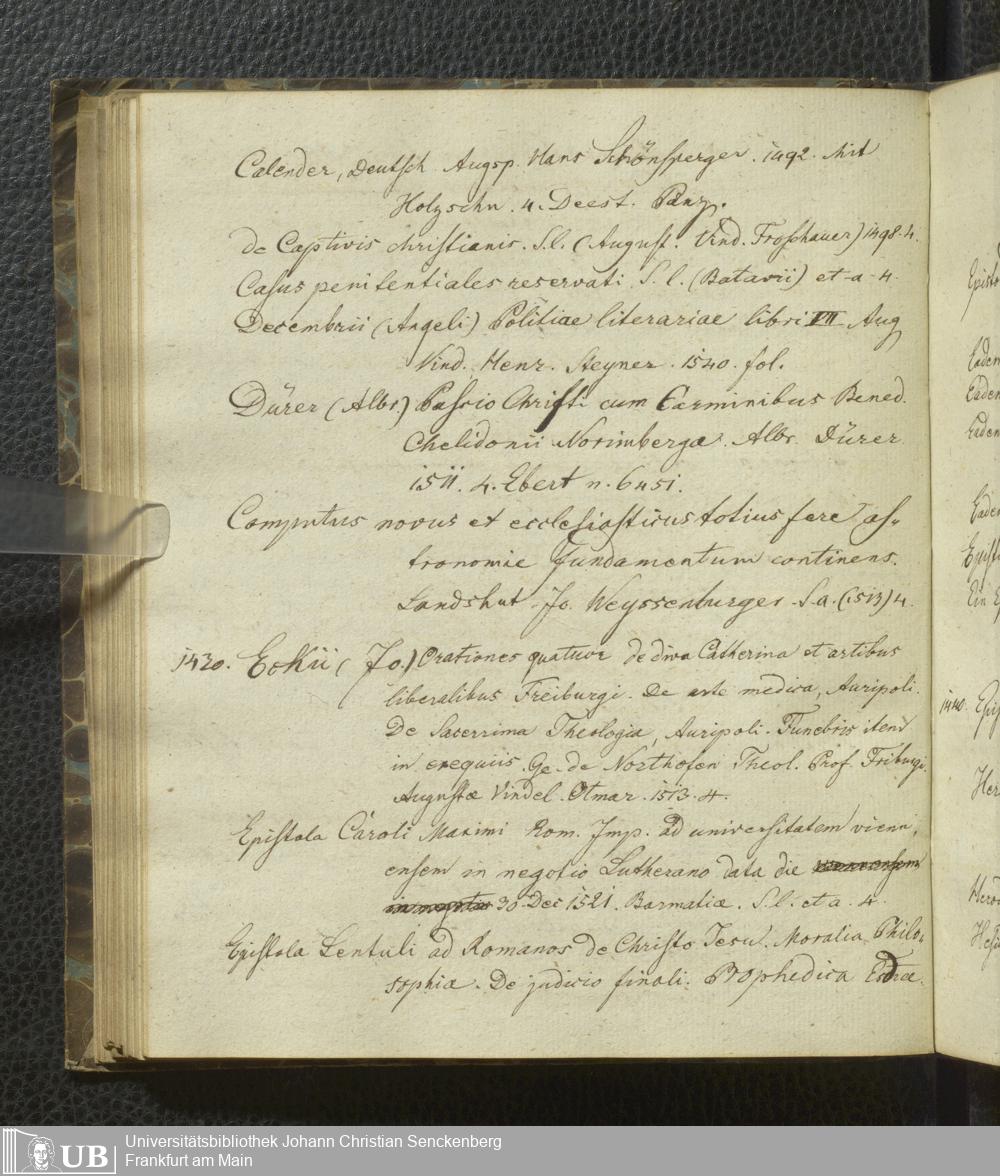 Calender, Deutsch Augsp. Hans Schönsperger. 1492. Mit
Holzschn. 4. Deest. Panz.
de Captivis christianis. S.l. (August. Vind. Froschauer) 1498. 4.
Casus penitentiales reservati. S. l. (Batavii) et a. 4.
Decembrii (Angeli) Politiae literariae libri VII Aug
Vind. Henr. Steyner. 1540. fol.
Dürer (Albr.) Passio Christi cum Carminibus Bened.
Chelidonii Norimbergæ. Albr. Dürer
1511. 4. Ebert n. 6451.
Computus novus et ecclesiasticus totius fere as-
tronomie fundamentum continens.
Landshut Jo. Weyssenburger S. a. (1513) 4.
1430. Eckii (Jo.) Orationes quatuor de diva Catherina et artibus
liberalibus Freiburgi. De arte medica, Auripoli.
De Sacerrima Theologia, Auripoli. Funebris item
in exequiis Ge. de Northofen Theol. Prof. Friburgi.
Augustæ Vindel. Otmar. 1513. 4.
Epistola Caroli Maximi Rom. Imp. ad universitatem vienn-
ensem in negotio Lutherano data die
30 Dec 1521. Barmatiæ. S. l. et a. 4.
Epistola Lentuli ad Romanos de Christo Jesu. Moralia Philo-
sophiæ. De judicio finali. Prophedica Esdræ.
1440. Epis
Epist
Eaden
Eaden
Eaden
Eaden
Epist
Ein E
Her
Herod
Hesi
UB
Universitätsbibliothek Johann Christian Senckenberg
Frankfurt am Main